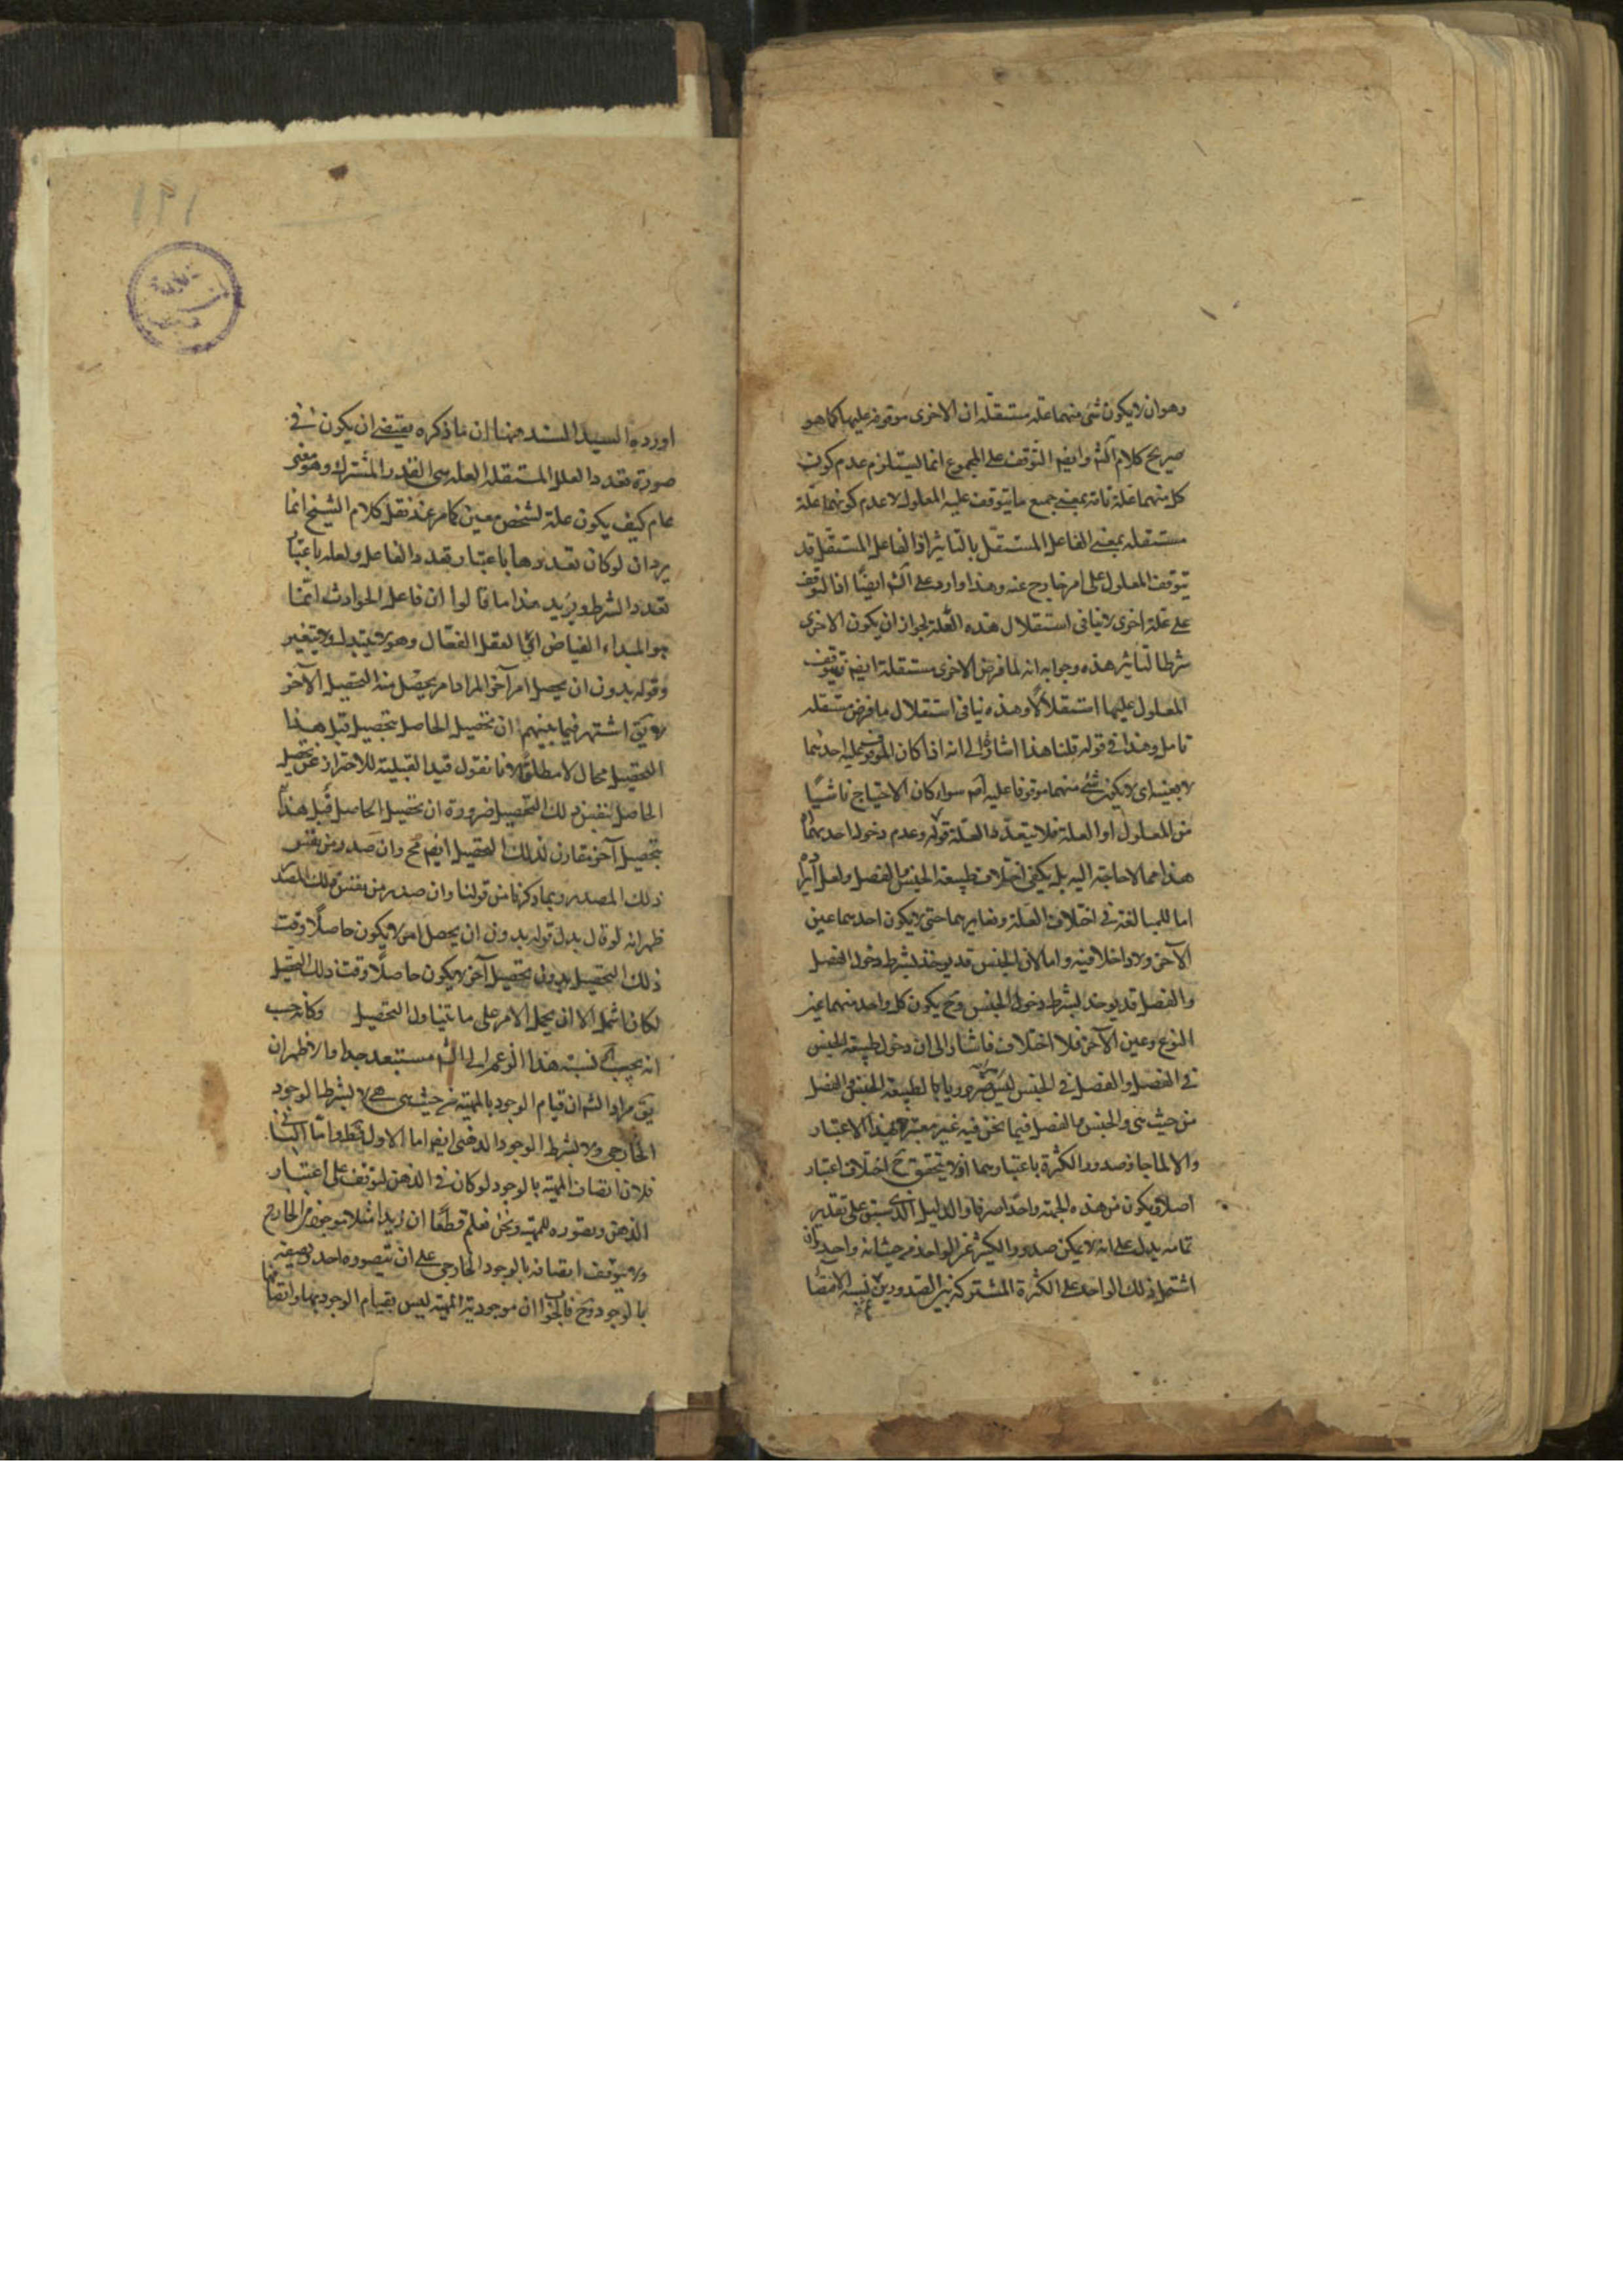 وهو ان لا يكون شئ منهما علة مستقلة ان الاخرى موقوفة عليها كما هو
صريح كلام الش وايضا التوقف على المجموع انما يستلزم عدم كون
كل منهما علة تامة بمعنى جميع ما يتوقف عليه المعلول لا عدم كونهما علة
مستقلة بمعنى الفاعل المستقل بالتاثير اذ الفاعل المستقل قد
يتوقف المعلول على امر خارج عنه وهذا وارد على الش ايضا اذ التوقف
على علة اخرى لا ينافى استقلال هذه العلة لجواز ان يكون الاخرى
شرطا لتاثير هذه وجوابه انه لما فرض الاخرى مستقلة ايضا توقف
المعلول عليها استقلالا وهذه ينافى استقلال ما فرض مستقلة
تامل وهذا فى قوله قلنا هذا اشارة الى انه اذا كان الموقوف عليه احدهما
لا بعينه اى لا يكون شئ منهما موقوفا عليه اصلا سواء كان الاحتياج ناشيا
من المعلول او العلة فلا يتعدد العلة قوله وعدم دخول احديهما
هذا مما لا حاجة اليه بل يكفى اختلاف طبيعة الجنس والفصل ولعل
اما للمبالغة فى اختلاف العلة وتغايرهما حتى لا يكون احدهما عين
الآخر ولا داخلا فيه واما لان الجنس قد يوخذ بشرط دخول الفصل
والفصل قد يوخذ بشرط دخول الجنس وح يكون كل واحد منهما عين
النوع وعين الآخر فلا اختلاف فاشار الى ان دخول طبيعة الجنس
فى الفصل والفصل فى الجنس ليس ضروريا بالطبيعة الجنس والفصل
من حيث هى والجنس والفصل فيما نحن فيه غير معتبر بهذا الاعتبار
والا لما جاز صدور الكثرة باعتبارهما اذ لا يتحقق ح اختلاف اعتبار
اصلا ويكون من هذه الجهة واحدا صرفا والدليل الذى سبق على تقدير
تمامه يدل على انه لا يمكن صدور الكثير عن الواحد من حيث انه واحد وان
اشتمل ذلك الواحد على الكثرة المشتركة بين الصدورين نسبة الاقتضا
١٩١
اورده السيد السند ههنا ان ما ذكره يقتضى ان يكون فى
صورة تعدد العلل المستقلة العلة هى القدر المشترك وهو معنى
عام كيف يكون علة لشخص معين كما مر عند نقل كلام الشيخ انما
يرد ان لو كان تعددها باعتبار تعدد الفاعل ولعله باعتبار
تعدد الشرط ويؤيد هذا ما قالوا ان فاعل الحوادث انما
هو المبداء الفياض اى العقل الفعال وهو لا يتبدل ولا يتغير
وقوله بدون ان يحصل امر آخر المراد امر يحصل منه التحصيل الآخر
لا يق اشتهر فيما بينهم ان تحصيل الحاصل بتحصيل قبل هذا
التحصيل محال لا مطلقا لانا نقول قيد القبلية للاحتراز عن تحصيل
الحاصل بنفس ذلك التحصيل ضرورة ان تحصيل الحاصل قبل هذا
بتحصيل آخر مقارن لذلك التحصيل ايضا مح وان صدر من نفس
ذلك المصدر وبما ذكرنا من قولنا وان صدر من نفس ذلك المصدر
ظهر انه لو قال بدل قوله بدون ان يحصل امر لا يكون حاصلا وقت
ذلك التحصيل بدون تحصيل آخر لا يكون حاصلا وقت ذلك التحصيل
لكان اشمل الا ان يحمل الامر على ما يتناول التحصيل وكانه حسب
انه يجب نسبة هذا الزعم الى الش مستبعد جدا والاظهر ان
يق مراد الش ان قيام الوجود بالمهية من حيث هى هى لا بشرط الوجود
الخارجى ولا بشرط الوجود الذهنى ايضا اما الاول فظ واما الثانى
فلان اتصاف المهية بالوجود لو كان فى الذهن لتوقف على اعتبار
الذهن وتصوره للمهية ونحن نعلم قطعا ان زيدا مثلا موجود فى الخارج
ولا يتوقف اتصافه بالوجود الخارجى على ان يتصوره احد ويصفه
بالوجود وح فالجواب ان موجودية المهية ليس بقيام الوجود بها واتصافها